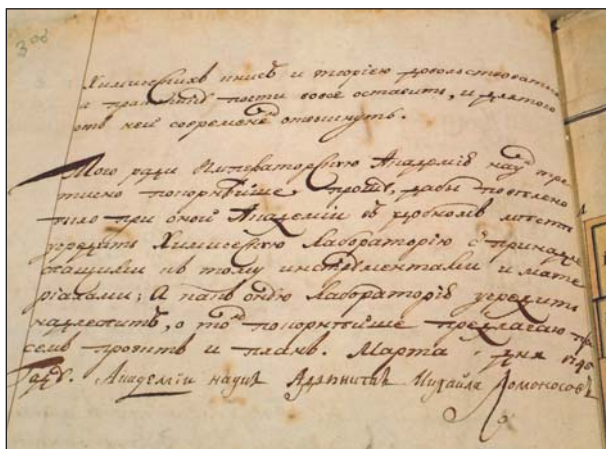 308
Химическихъ книгъ и теорїею довольствоватся
а практику почти вовсе оставить, и для того
отъ ней современемъ отвыкнуть.
Того ради Императорскую Академїю наукъ тре
тично покорнѣйше прошу, дабы повелено
было при оной Академїи въ удобномъ мѣсте
учредить Химическую Лабораторїю с принадле
жащими къ тому инструментами и мате
рїалами; А какъ оную Лабораторїю учредить
надлежитъ, о томъ покорнѣйше предлагаю при
семъ проэктъ и планъ. Марта дня 1745
Году. Академїи наукъ Адъюнктъ Михайла Ломоносовъ